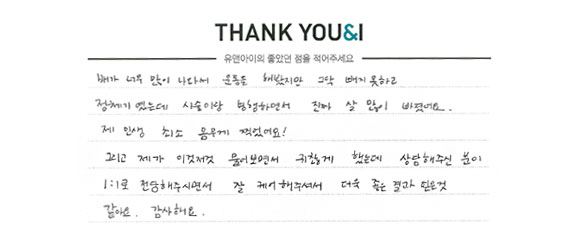 THANK YOU&I
유앤아이의 좋았던 점을 적어주세요
배가 너무 많이 나와서 운동을 해봤지만 그닥 빼지 못하고
정체기였는데 시술이랑 병행하면서 진짜 살 많이 빠졌어요.
제 인생 최소 몸무게 찍었어요!
그리고 제가 이것저것 물어보면서 귀찮게 했는데 상담해주신 분이
1:1로 전담해주시면서 잘 케어해주셔서 더욱 좋은 결과 얻은것
같아요. 감사해요.